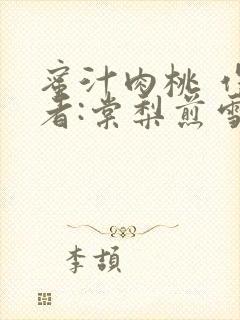 蜜汁肉桃
者:棠梨煎雪
李頡